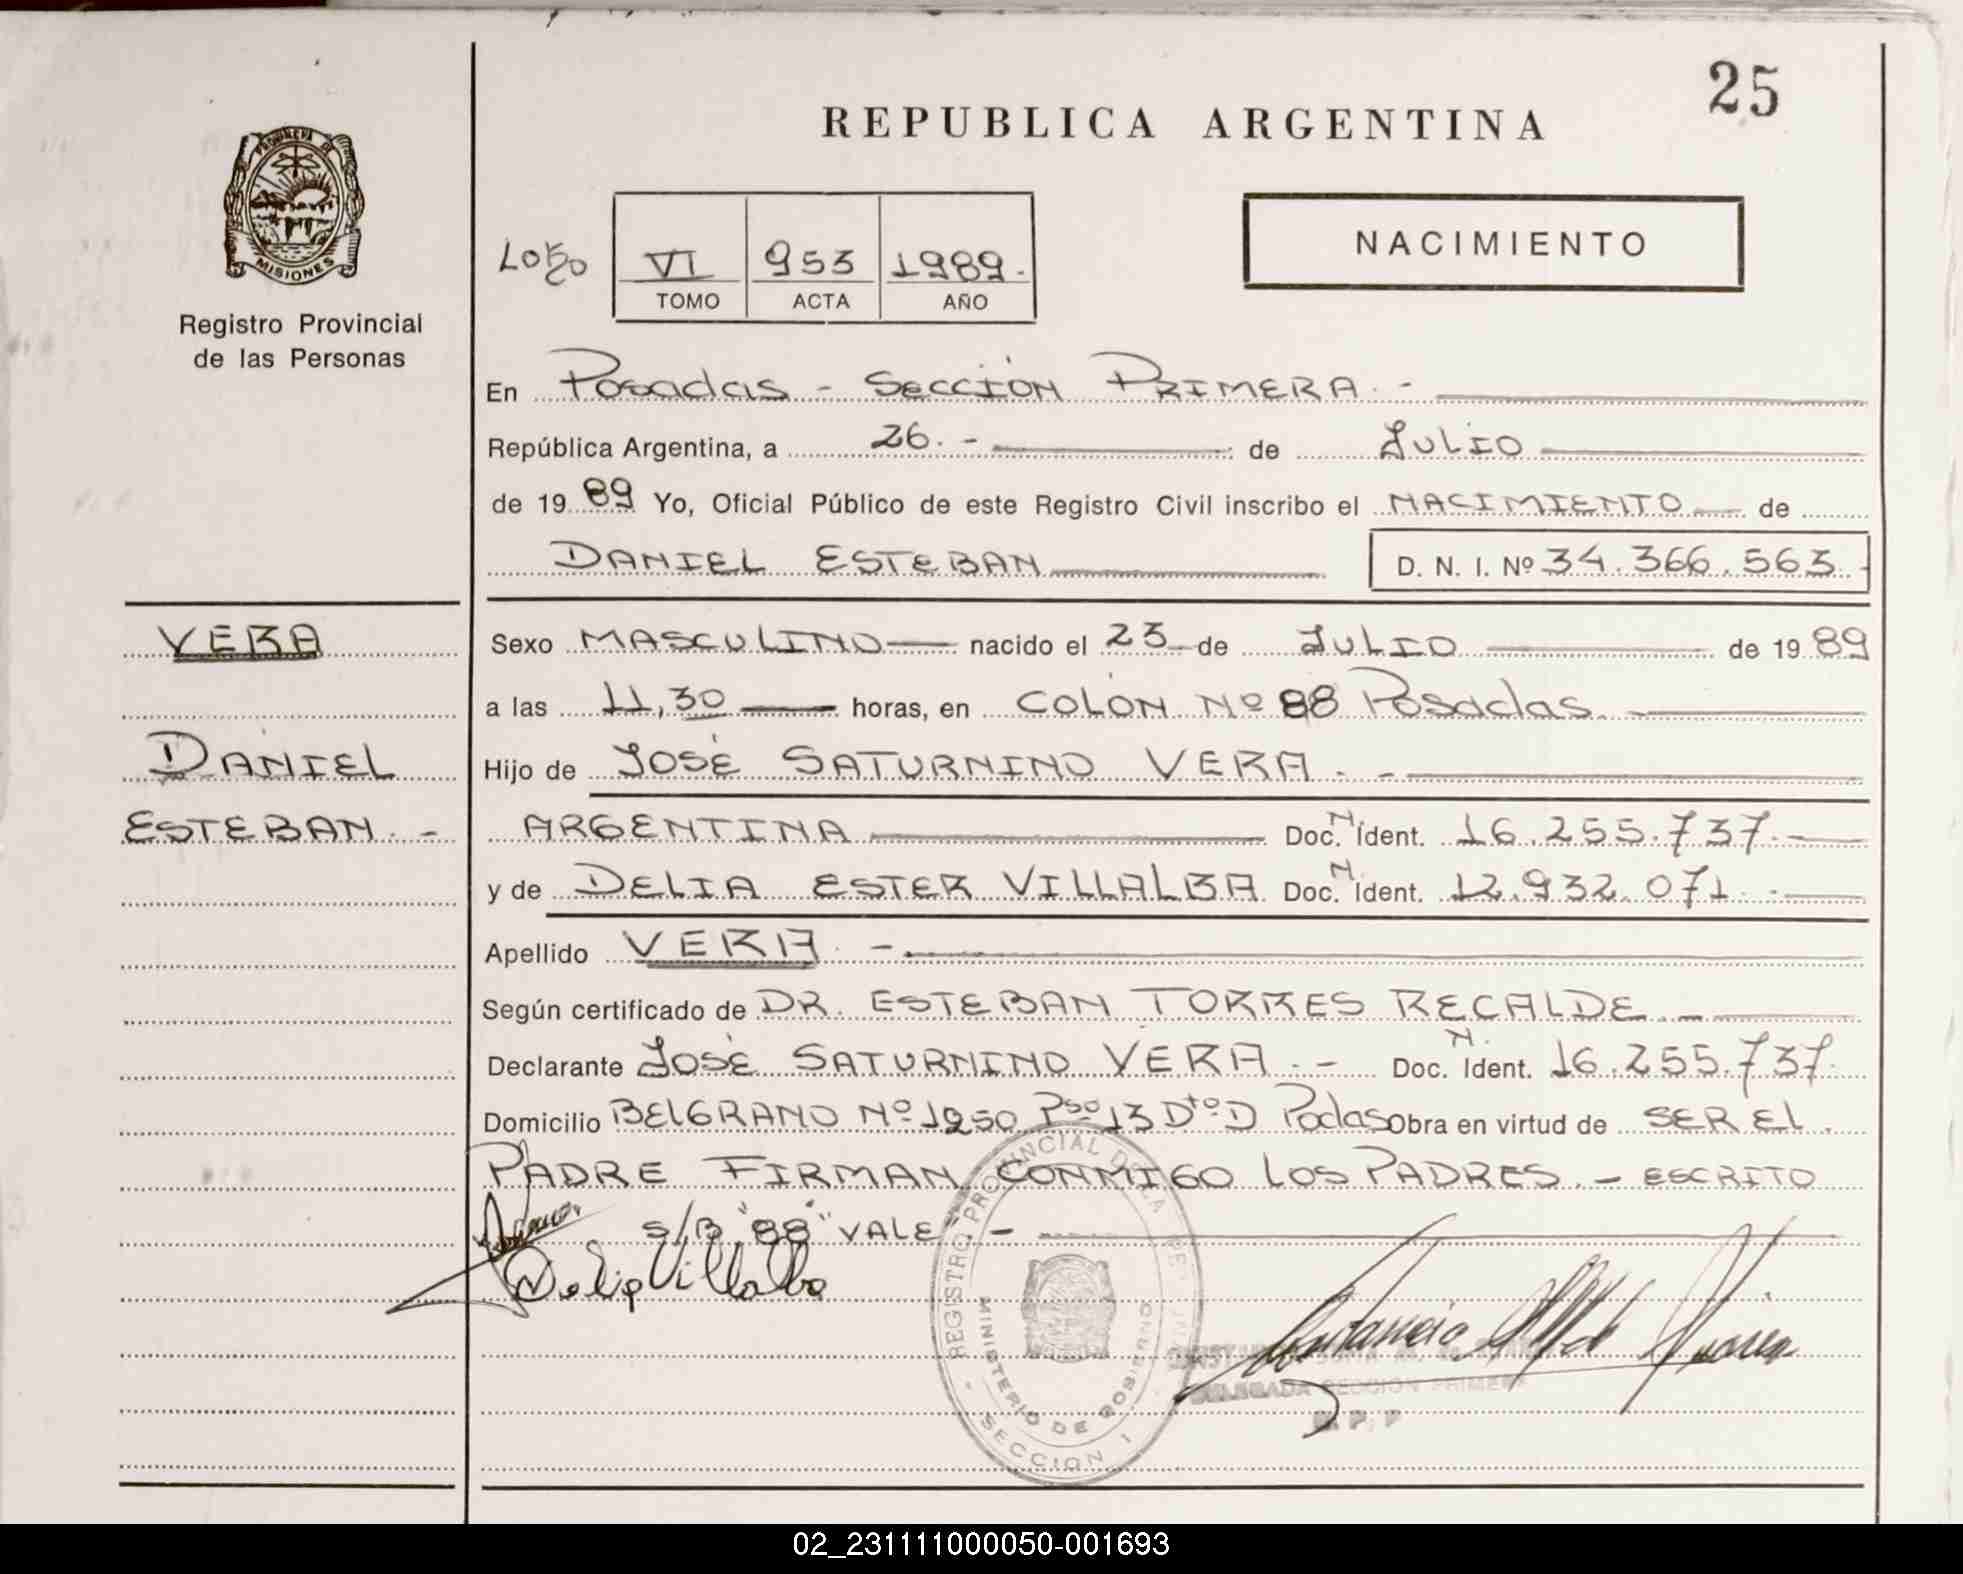 25
REPUBLICA ARGENTINA
PROVINCIA DE
MISIONES
Registro Provincial
de las Personas
VI 953 1989.-
TOMO ACTA AÑO
NACIMIENTO
En Posadas - Sección Primera.-
República Argentina, a 26.- de Julio
de 1989 Yo, Oficial Público de este Registro Civil inscribo el NACIMIENTO de
DANIEL ESTEBAN D. N. I. Nº 34.366.563.-
VERA
Sexo MASCULINO nacido el 23 de Julio de 1989
a las 11,30 horas, en COLÓN Nº 88 Posadas.-
DANIEL
Hijo de JOSÉ SATURNINO VERA.-
ESTEBAN.-
ARGENTINA Doc. N. Ident. 16.255.737.-
y de DELIA ESTER VILLALBA Doc. N. Ident. 12.932.071.-
Apellido VERA.-
Según certificado de DR. ESTEBAN TORRES RECALDE.-
Declarante JOSÉ SATURNINO VERA.- Doc. N. Ident. 16.255.737.
Domicilio BELGRANO Nº 1250 Pso 13 Dto D Podas Obra en virtud de SER EL
PADRE FIRMAN CONMIGO LOS PADRES.- ESCRITO
S/B "88" VALE.-
Delia Villalba
REGISTRO PROVINCIAL DE LAS PERSONAS
MINISTERIO DE GOBIERNO
- SECCION 1 -
DELEGADA SECCION PRIMERA
R. P. P.
02_231111000050-001693